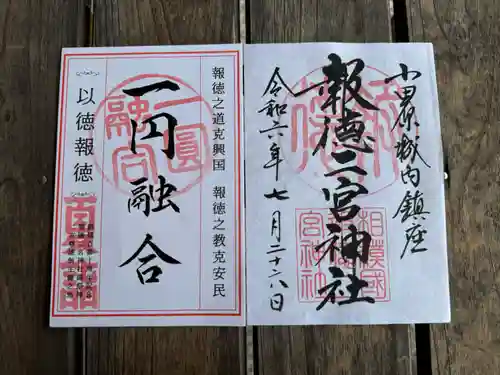 小田原城内鎮座
報徳二宮神社
令和六年七月二十八日
相模國
宮神社
報徳之道克興国 報徳之教克安民
一円融合
一圓融合
以徳報徳